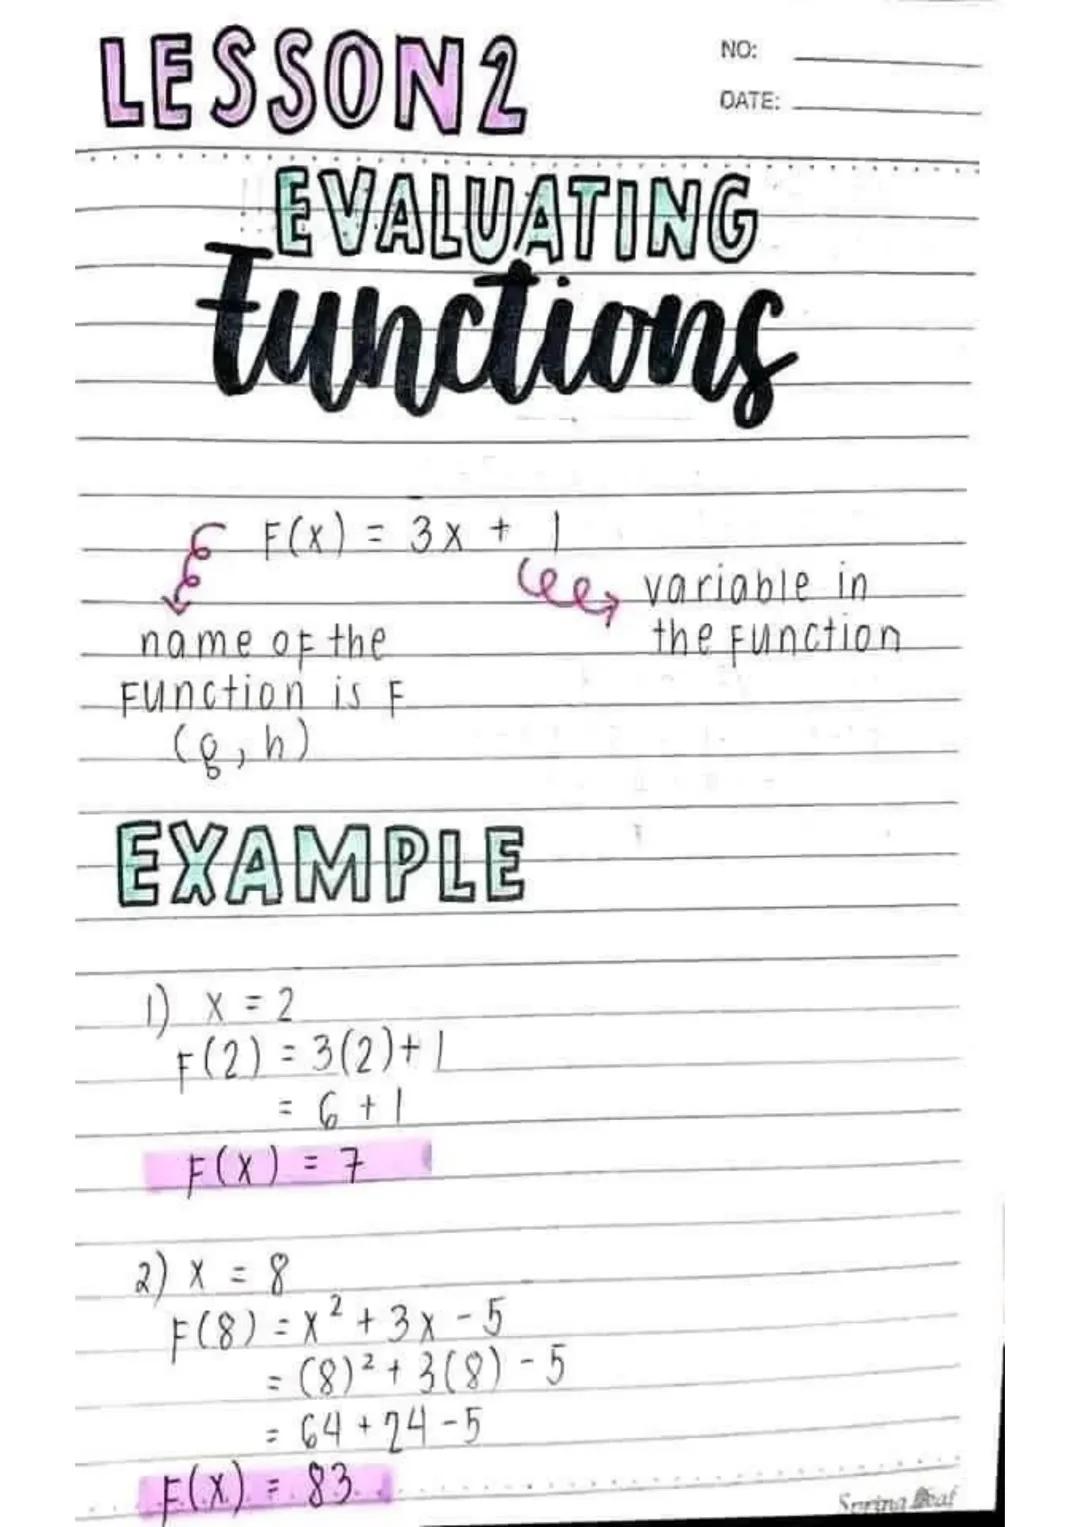 LESSON2
NO:
DATE:
EVALUATING
Functions
F(x) = 3x + 1
variable in
the function
name of the
function is F
(g, h)
EXAMPLE
1) x = 2
F(2) = 3(2)+1
= 6 + 1
F(x) = 7
2) x = 8
F(8) = x² + 3x - 5
= (8)² + 3(8) - 5
= 64 + 24 - 5
F(x) = 83
Spring Leaf